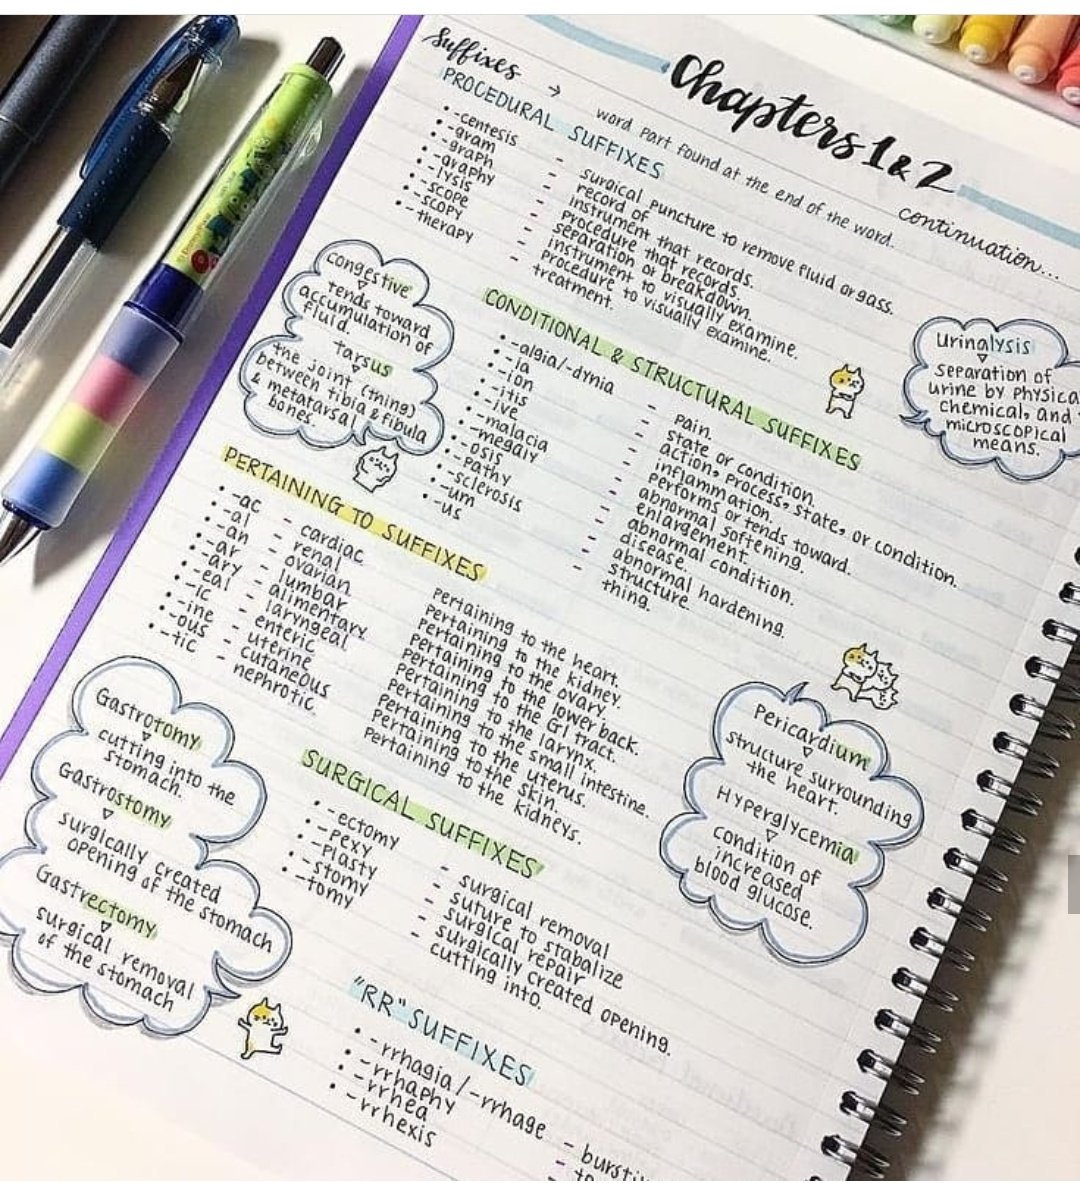 Chapters 1 & 2
continuation...
Suffixes → word part found at the end of the word.
PROCEDURAL SUFFIXES
• -centesis - surgical puncture to remove fluid or gass.
• -gram - record of
• -graph - instrument that records.
• -graphy - procedure that records.
• -lysis - separation or breakdown.
• -scope - instrument to visually examine.
• -scopy - procedure to visually examine.
• -therapy - treatment.
congestive
tends toward
accumulation of
fluid.
Tarsus
the joint (thing)
between tibia & fibula
& metatarsal
bones.
CONDITIONAL & STRUCTURAL SUFFIXES
• -algia/-dynia - pain.
• -ia - state or condition.
• -ion - action, process, state, or condition.
• -itis - inflammation.
• -ive - performs or tends toward.
• -malacia - abnormal softening.
• -megaly - enlargement.
• -osis - abnormal condition.
• -pathy - disease.
• -sclerosis - abnormal hardening.
• -um - structure.
• -us - thing.
Urinalysis
separation of
urine by physica
chemical, and
microscopical
means.
PERTAINING TO SUFFIXES
• -ac - cardiac Pertaining to the heart.
• -al - renal Pertaining to the kidney.
• -an - ovarian Pertaining to the ovary.
• -ar - lumbar Pertaining to the lower back.
• -ary - alimentary Pertaining to the GI tract.
• -eal - laryngeal Pertaining to the larynx.
• -ic - enteric Pertaining to the small intestine.
• -ine - uterine Pertaining to the uterus.
• -ous - cutaneous Pertaining to the skin.
• -tic - nephrotic Pertaining to the kidneys.
Gastrotomy
cutting into the
stomach.
Gastrostomy
surgically created
opening of the stomach
Gastrectomy
surgical removal
of the stomach
Pericardium
structure surrounding
the heart.
Hyperglycemia
condition of
increased
blood glucose.
SURGICAL SUFFIXES
• -ectomy - surgical removal
• -pexy - suture to stabalize
• -plasty - surgical repair
• -stomy - surgically created opening.
• -tomy - cutting into.
"RR" SUFFIXES
• -rrhagia/-rrhage - bursti
• -rrhaphy
• -rrhea
• -rrhexis